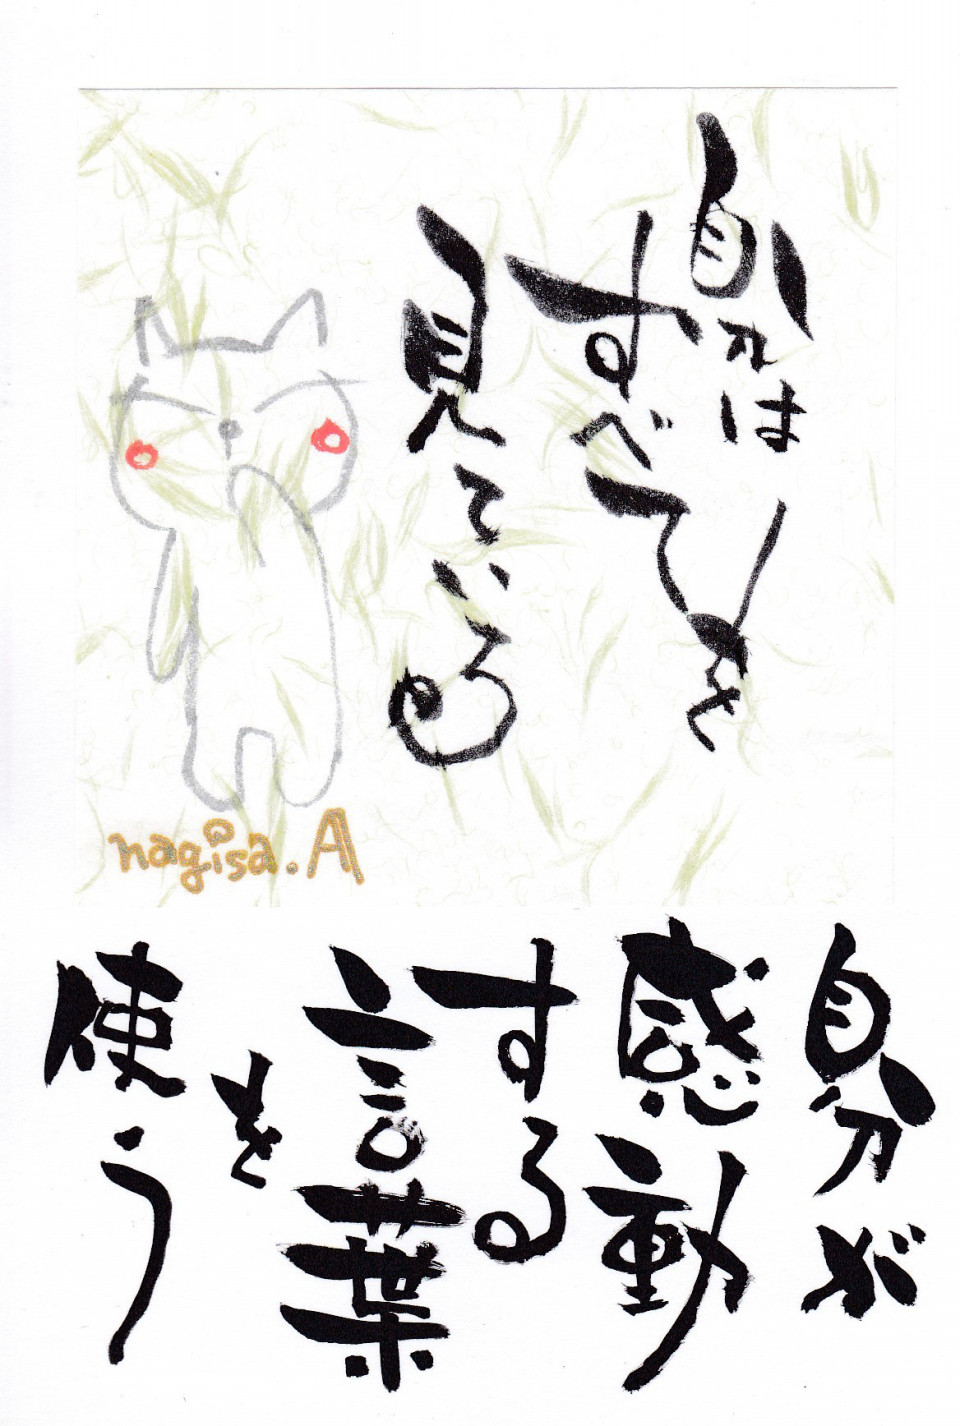 自分は
すべてを
見ている
nagisa.A
自分が
感動
する
言葉
を
使う